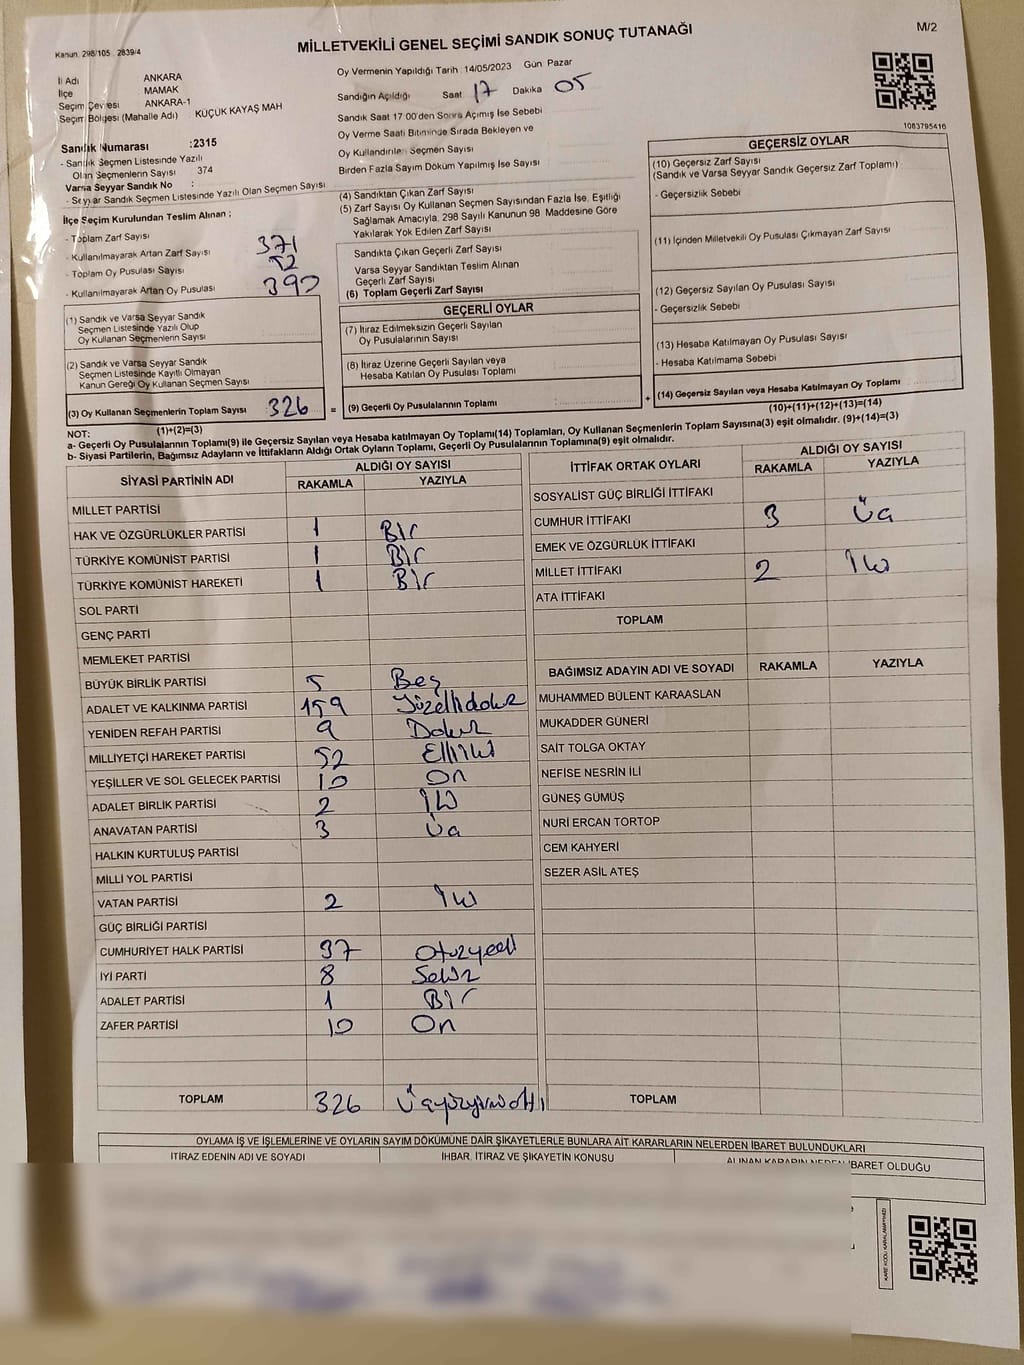 Kanun. 298/105 . 2839/4
MİLLETVEKİLİ GENEL SEÇİMİ SANDIK SONUÇ TUTANAĞI
M/2
İl Adı ANKARA
İlçe MAMAK
Seçim Çevresi ANKARA-1
Seçim Bölgesi (Mahalle Adı) KÜÇÜK KAYAŞ MAH
Sandık Numarası :2315
- Sandık Seçmen Listesinde Yazılı
Olan Seçmenlerin Sayısı 374
Varsa Seyyar Sandık No :
- Seyyar Sandık Seçmen Listesinde Yazılı Olan Seçmen Sayısı
İlçe Seçim Kurulundan Teslim Alınan ;
- Toplam Zarf Sayısı 371
- Kullanılmayarak Artan Zarf Sayısı 52
- Toplam Oy Pusulası Sayısı 390
- Kullanılmayarak Artan Oy Pusulası
(1) Sandık ve Varsa Seyyar Sandık
Seçmen Listesinde Yazılı Olup
Oy Kullanan Seçmenlerin Sayısı
(2) Sandık ve Varsa Seyyar Sandık
Seçmen Listesinde Kayıtlı Olmayan
Kanun Gereği Oy Kullanan Seçmen Sayısı
(3) Oy Kullanan Seçmenlerin Toplam Sayısı 326 =
(1)+(2)=(3)
Oy Vermenin Yapıldığı Tarih : 14/05/2023 Gün Pazar
Sandığın Açıldığı Saat 17 Dakika 05
Sandık Saat 17 00'den Sonra Açımış İse Sebebi
Oy Verme Saati Bitiminde Sırada Bekleyen ve
Oy Kullandırılan Seçmen Sayısı
Birden Fazla Sayım Döküm Yapılmış İse Sayısı
(4) Sandıktan Çıkan Zarf Sayısı
(5) Zarf Sayısı Oy Kullanan Seçmen Sayısından Fazla İse, Eşitliği
Sağlamak Amacıyla, 298 Sayılı Kanunun 98. Maddesine Göre
Yakılarak Yok Edilen Zarf Sayısı
Sandıkta Çıkan Geçerli Zarf Sayısı
Varsa Seyyar Sandıktan Teslim Alınan
Geçerli Zarf Sayısı
(6) Toplam Geçerli Zarf Sayısı
GEÇERLİ OYLAR
(7) İtiraz Edilmeksizin Geçerli Sayılan
Oy Pusulalarının Sayısı
(8) İtiraz Üzerine Geçerli Sayılan veya
Hesaba Katılan Oy Pusulası Toplamı
(9) Geçerli Oy Pusulalarının Toplamı +
1083795416
GEÇERSİZ OYLAR
(10) Geçersiz Zarf Sayısı
(Sandık ve Varsa Seyyar Sandık Geçersiz Zarf Toplamı)
- Geçersizlik Sebebi
(11) İçinden Milletvekili Oy Pusulası Çıkmayan Zarf Sayısı
(12) Geçersiz Sayılan Oy Pusulası Sayısı
- Geçersizlik Sebebi
(13) Hesaba Katılmayan Oy Pusulası Sayısı
- Hesaba Katılmama Sebebi
(14) Geçersiz Sayılan veya Hesaba Katılmayan Oy Toplamı
(10)+(11)+(12)+(13)=(14)
NOT:
a- Geçerli Oy Pusulalarının Toplamı(9) ile Geçersiz Sayılan veya Hesaba katılmayan Oy Toplamı(14) Toplamları, Oy Kullanan Seçmenlerin Toplam Sayısına(3) eşit olmalıdır. (9)+(14)=(3)
b- Siyasi Partilerin, Bağımsız Adayların ve İttifakların Aldığı Ortak Oyların Toplamı, Geçerli Oy Pusulalarının Toplamına(9) eşit olmalıdır.
SİYASİ PARTİNİN ADI ALDIĞI OY SAYISI
RAKAMLA YAZIYLA
MİLLET PARTİSİ
HAK VE ÖZGÜRLÜKLER PARTİSİ 1 Bir
TÜRKİYE KOMÜNİST PARTİSİ 1 Bir
TÜRKİYE KOMÜNİST HAREKETİ 1 Bir
SOL PARTİ
GENÇ PARTİ
MEMLEKET PARTİSİ
BÜYÜK BİRLİK PARTİSİ 5 Beş
ADALET VE KALKINMA PARTİSİ 159 Yüzellidokuz
YENİDEN REFAH PARTİSİ 9 Dokuz
MİLLİYETÇİ HAREKET PARTİSİ 52 Elliiki
YEŞİLLER VE SOL GELECEK PARTİSİ 10 On
ADALET BİRLİK PARTİSİ 2 İki
ANAVATAN PARTİSİ 3 Üç
HALKIN KURTULUŞ PARTİSİ
MİLLİ YOL PARTİSİ
VATAN PARTİSİ 2 İki
GÜÇ BİRLİĞİ PARTİSİ
CUMHURİYET HALK PARTİSİ 37 Otuzyedi
İYİ PARTİ 8 Sekiz
ADALET PARTİSİ 1 Bir
ZAFER PARTİSİ 10 On
TOPLAM 326 Üçyüzyirmialtı
İTTİFAK ORTAK OYLARI ALDIĞI OY SAYISI
RAKAMLA YAZIYLA
SOSYALİST GÜÇ BİRLİĞİ İTTİFAKI
CUMHUR İTTİFAKI 3 Üç
EMEK VE ÖZGÜRLÜK İTTİFAKI
MİLLET İTTİFAKI 2 İki
ATA İTTİFAKI
TOPLAM
BAĞIMSIZ ADAYIN ADI VE SOYADI RAKAMLA YAZIYLA
MUHAMMED BÜLENT KARAASLAN
MUKADDER GÜNERİ
SAİT TOLGA OKTAY
NEFİSE NESRİN İLİ
GÜNEŞ GÜMÜŞ
NURİ ERCAN TORTOP
CEM KAHYERİ
SEZER ASİL ATEŞ
TOPLAM
OYLAMA İŞ VE İŞLEMLERİNE VE OYLARIN SAYIM DÖKÜMÜNE DAİR ŞİKAYETLERLE BUNLARA AİT KARARLARIN NELERDEN İBARET BULUNDUKLARI
İTİRAZ EDENİN ADI VE SOYADI İHBAR, İTİRAZ VE ŞİKAYETİN KONUSU ALINAN KARARIN NEDEN İBARET OLDUĞU
KARE KODU KARALAMAYINIZ